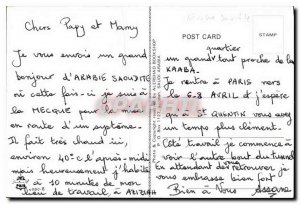 Chers Papy et Mamy
Je vous envois un grand
bonjour d'ARABIE SAOUDITE
cette fois-ci je suis à
la MECQUE pour la mise
en route d'un système.
Il fait très chaud ici,
environ 40°C l'après-midi
mais heureusement j'habite
à 10 minutes de mon
lieu de travail à AZIZIAH
POST CARD
STAMP
quartier
un grand tout proche de la
KAABA.
Je rentre à PARIS vers
le 6-8 AVRIL et j'espère
qu'à St QUENTIN vous avez
un temps plus clément.
Côté travail je commence à
voir l'autre bout du tunnel
En attendant de vous retrouver je
vous embrasse bien fort
Bien à Vous